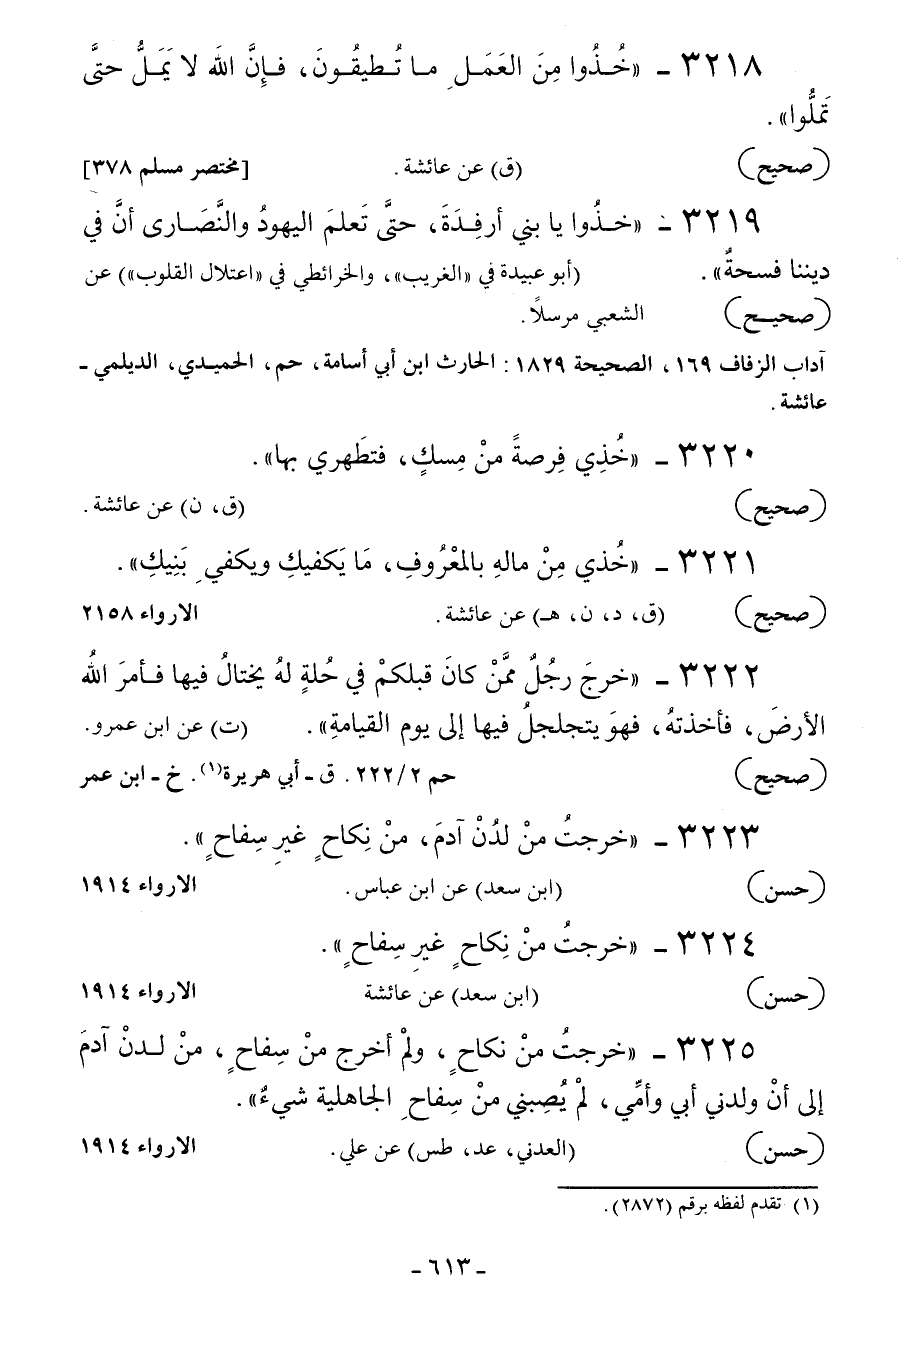 ٣٢١٨ - «خُـذُوا مِنَ العَمَـلِ مـا تُـطيقُـونَ، فـإِنَّ اللهَ لا يَمَـلُّ حتَّى
تَملُّوا».
(صحيح) (ق) عن عائشة. [مختصر مسلم ٣٧٨]
٣٢١٩ - «خـذُوا يا بني أرفِـدَةَ، حتَّى تَعلمَ اليهودُ والنَّصَـارى أنَّ في
ديننا فسحةٌ». (أبو عبيدة في «الغريب»، والخرائطي في «اعتلال القلوب») عن
(صحيـح) الشعبي مرسلاً.
آداب الزفاف ١٦٩، الصحيحة ١٨٢٩: الحارث ابن أبي أسامة، حم، الحميـدي، الديلمي -
عائشة.
٣٢٢٠ - «خُذِي فِرصةً منْ مِسكٍ، فتطَهري بها».
(صحيح) (ق، ن) عن عائشة.
٣٢٢١ - «خُذي مِنْ مالهِ بالمعْرُوفِ، مَا يَكفيكِ ويكفي بَنِيكِ».
(صحيح) (ق، د، ن، هـ) عن عائشة. الارواء ٢١٥٨
٣٢٢٢ - «خرجَ رجُلٌ ممَّنْ كانَ قبلكمْ في حُلةٍ لهُ يختالُ فيها فـأمرَ اللهُ
الأرضَ، فأخذتهُ، فهوَ يتجلجلُ فيها إلى يوم القيامةِ». (ت) عن ابن عمرو.
(صحيح) حم ٢/٢٢٢. ق - أبي هريرة(١). خ - ابن عمر
٣٢٢٣ - «خرجتُ منْ لدُنْ آدمَ، منْ نِكاحٍ غيرِ سِفاحٍ».
(حسن) (ابن سعد) عن ابن عباس. الارواء ١٩١٤
٣٢٢٤ - «خرجتُ منْ نِكاحٍ غيرِ سِفاحٍ».
(حسن) (ابن سعد) عن عائشة الارواء ١٩١٤
٣٢٢٥ - «خرجتُ منْ نكاحٍ، ولمْ أخرج منْ سِفاحٍ، منْ لـدنْ آدمَ
إلى أنْ ولدني أبي وأمِّي، لمْ يُصِبني منْ سِفاحِ الجاهلية شيءٌ».
(حسن) (العدني، عد، طس) عن علي. الارواء ١٩١٤
(١) تقدم لفظه برقم (٢٨٧٢).
- ٦١٣ -